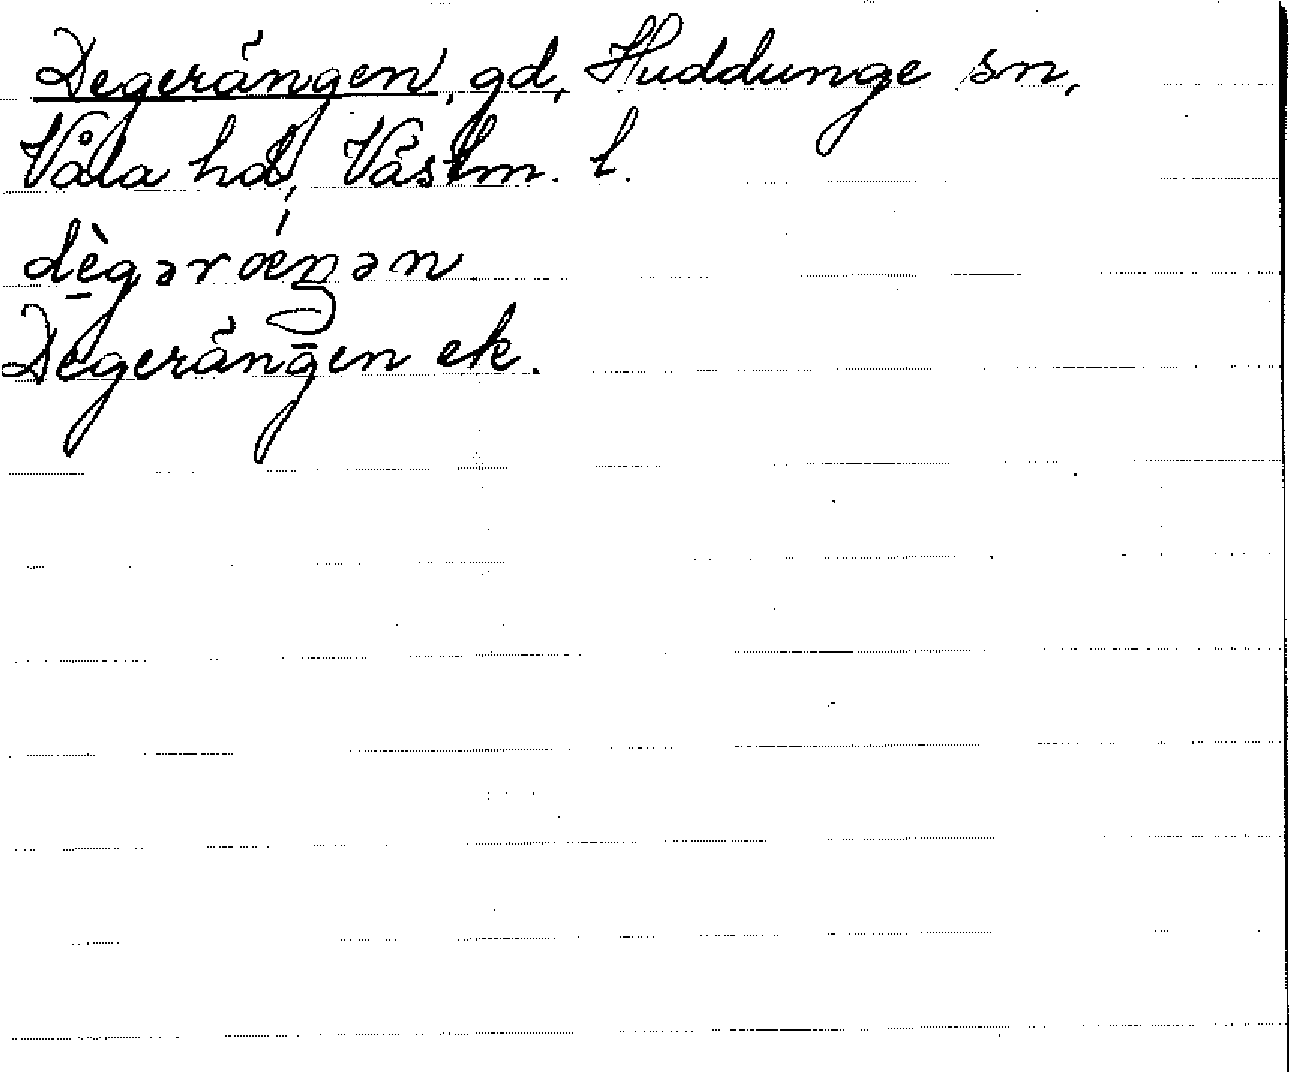 Degerängen, gd, Huddunge sn,
Våla hd, Västm. l.
dè̱gərǽŋən
Degerängen ek.